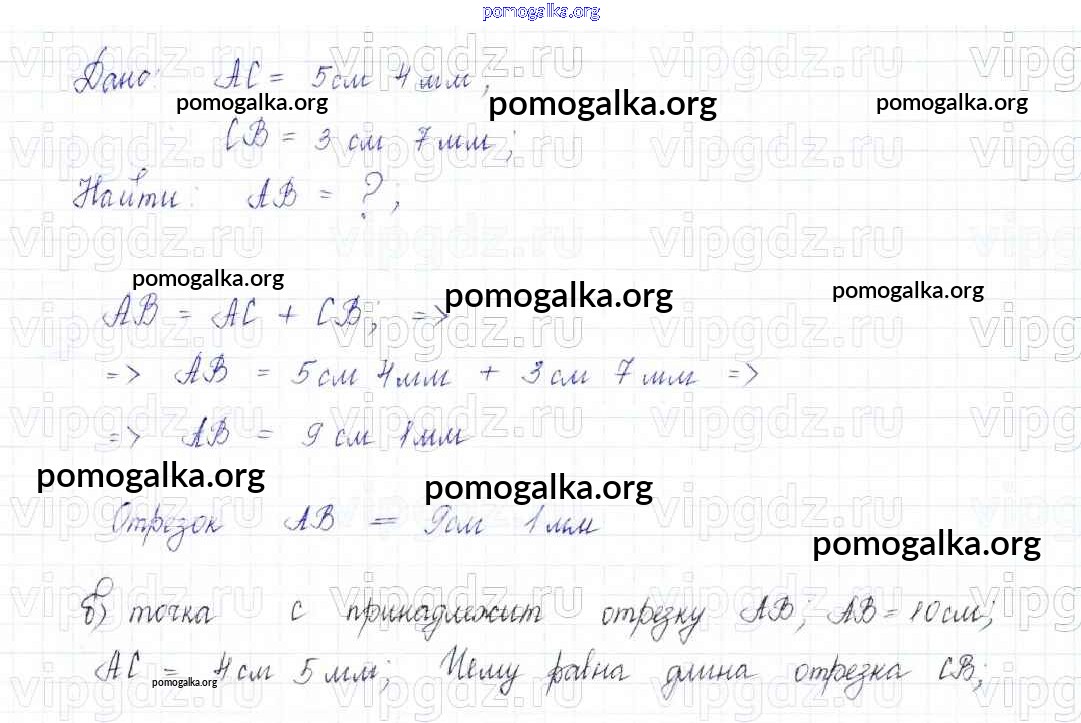 pomogalka.org
Дано: AC = 5см 4мм;
pomogalka.org pomogalka.org pomogalka.org
CB = 3 см 7мм;
Найти: AB = ?;
pomogalka.org pomogalka.org pomogalka.org
AB = AC + CB; =>
=> AB = 5см 4мм + 3см 7мм =>
=> AB = 9см 1мм
pomogalka.org pomogalka.org
Отрезок AB = 9см 1мм
pomogalka.org
б) точка с принадлежит отрезку AB; AB = 10см;
AC = 4см 5мм; Чему равна длина отрезка CB;
pomogalka.org
vipgdz.ru vipgdz.ru vipgdz.ru